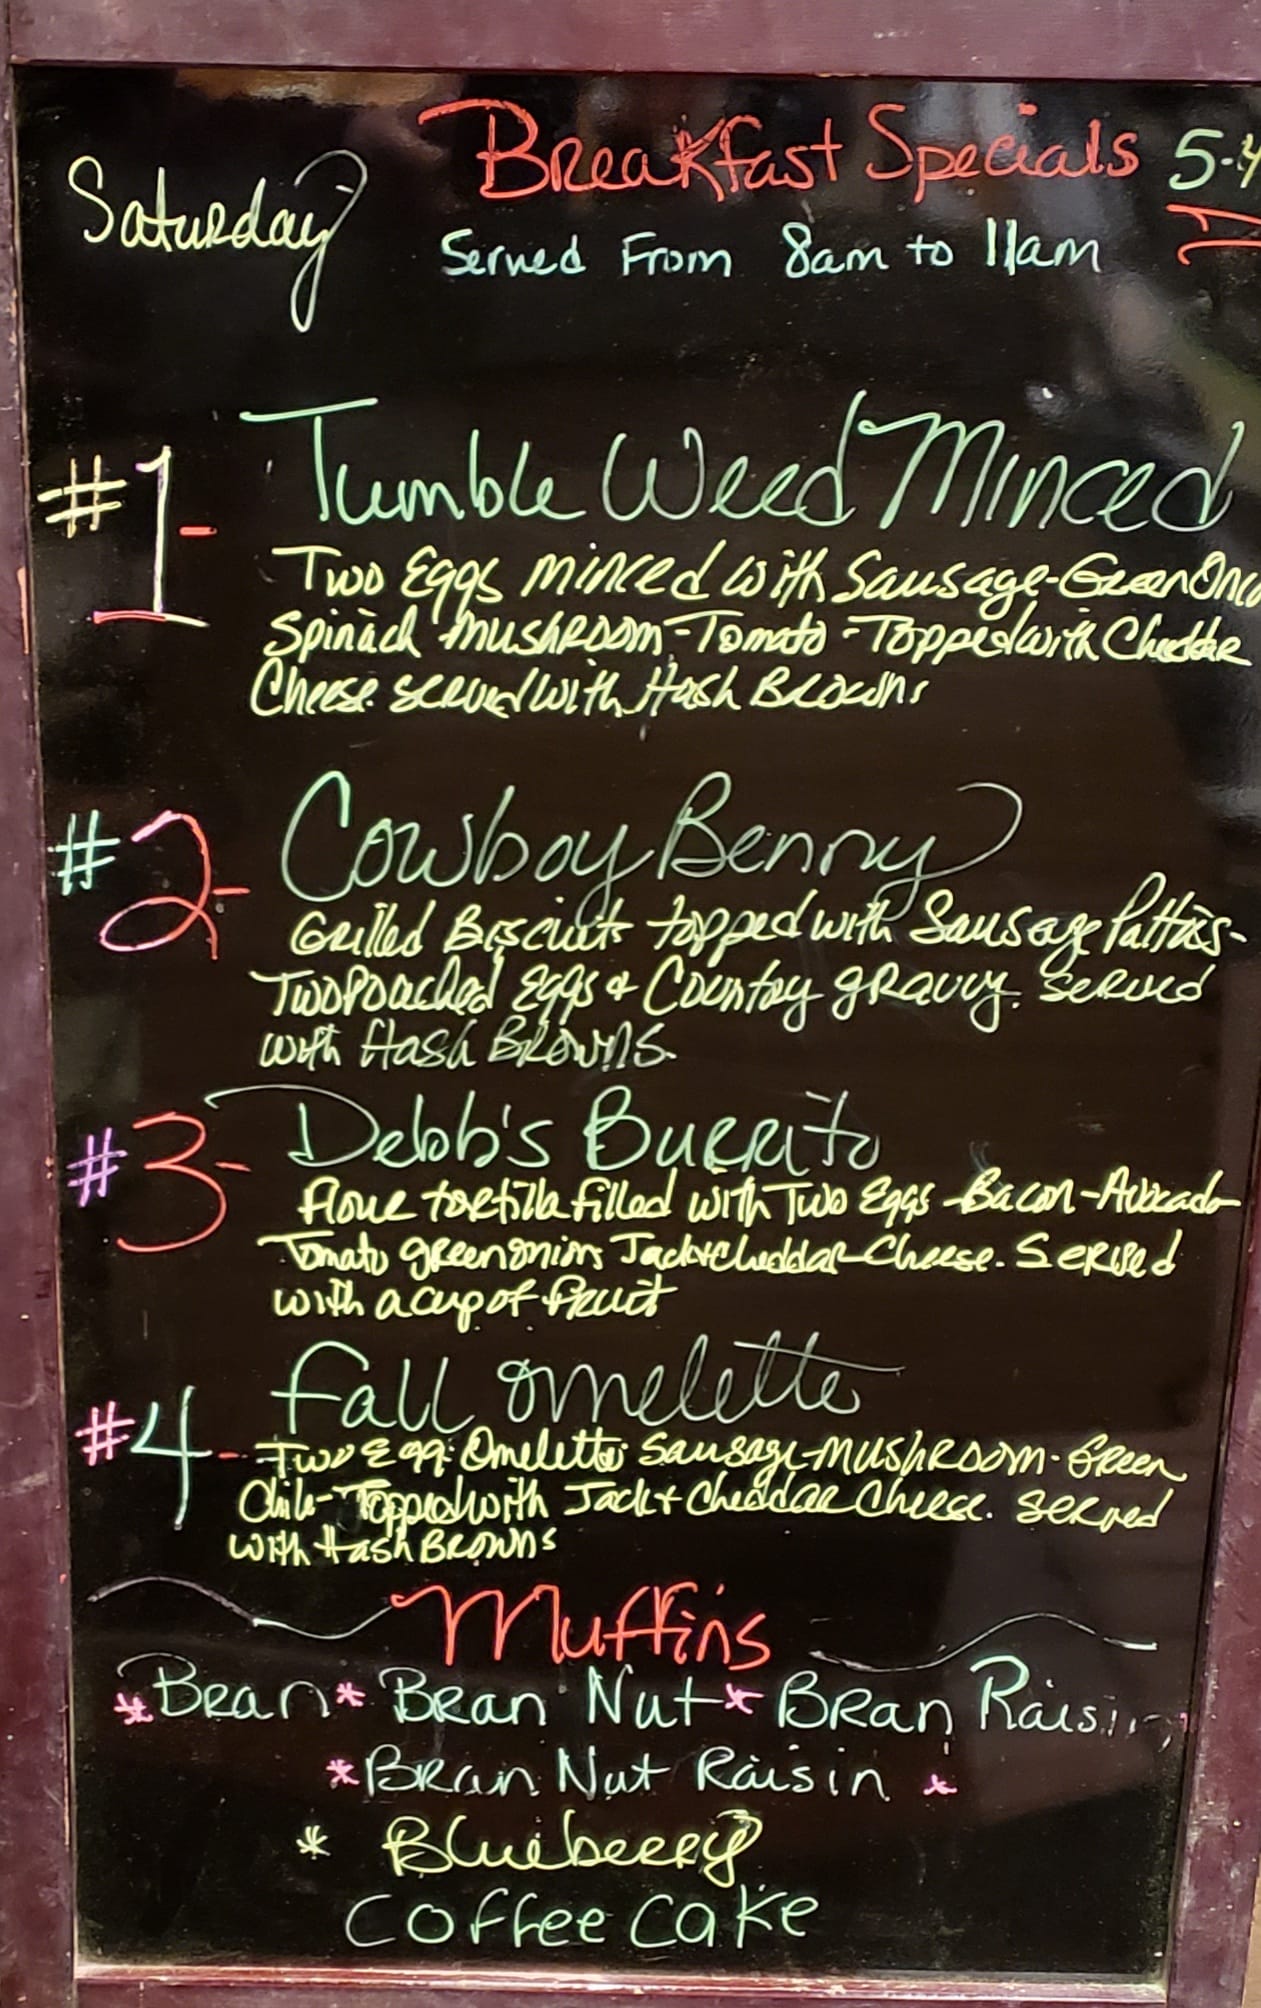 Breakfast Specials 5-4
Saturday
Served From 8am to 11am
#1- Tumble Weed Minced
Two Eggs minced with Sausage-Green Onio
Spinach mushroom-Tomato-Topped with Cheddar
Cheese. served with Hash Browns
#2- Cowboy Benny
Grilled Biscuits topped with Sausage Patties-
Two Poached Eggs & Country gravy. Served
with Hash Browns.
#3- Debb's Burrito
flour tortilla filled with Two Eggs-Bacon-Avocado-
Tomato green onions Jack+Cheddar Cheese. Served
with a cup of fruit
#4- Fall Omelette
Two Egg Omelette Sausage-mushroom-Green
Chile-Topped with Jack+Cheddar Cheese. Served
with Hash Browns
Muffins
*Bran* Bran Nut* Bran Raisin
*Bran Nut Raisin *
* Blueberry
Coffee Cake